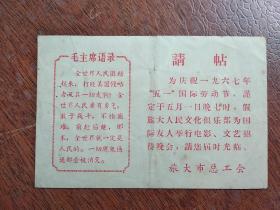 毛主席语录
全世界人民团结
起来，打败美国侵略
者及其一切走狗！全
世界人民要有勇气，
敢于战斗，不怕困难，
前赴后继，那
末，全世界就一定是人
民的。一切魔鬼通
通都会被消灭。
請帖
为庆祝一九六七年
“五一”国际劳动节，謹
定于五月一日晚七时，假
旅大人民文化俱乐部为国
际友人举行电影、文艺招
待晚会，請您届时光临。
旅大市总工会